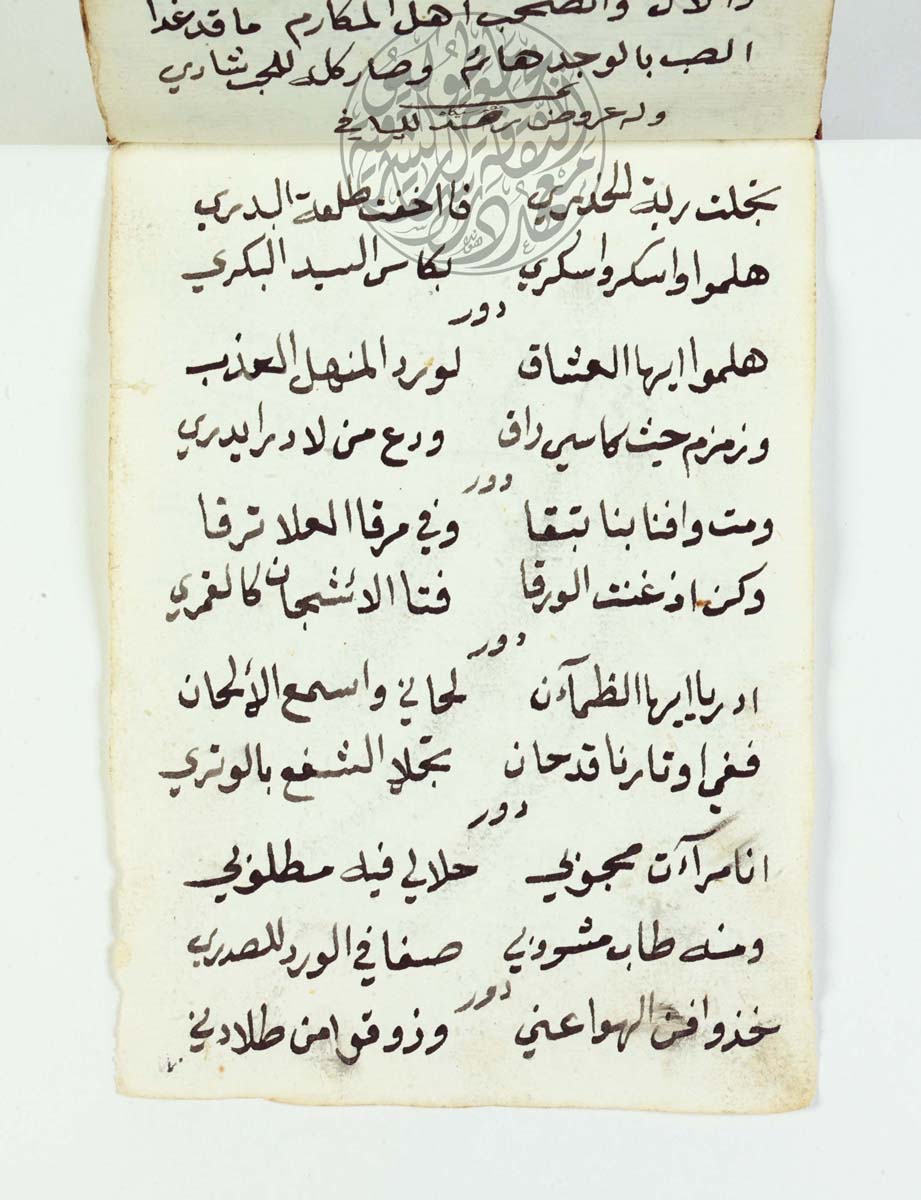 والآل والصحب اهل المكارم ما قد غدا
الصب بالوجد هائم وصار كله للحب شاري
وله عروض
تجلت ربة الخدري فااخفت طلعة البدري
هلموا واسكر واسكري بكاس السيد البكري
دور
هلموا ايها العشاق لورد المنهل العذب
وزمزم حيث كاسي راق ودع من لا درا يدري
دور
ومت وافنا بنا تبقا وفي مرقا العلا ترقا
وكن اذ غنت الورقا فتا الاشجان كالقمري
دور
ادر يا ايها الظمآن لحاني واسمع الألحان
ففي اوتارنا قد حان تجلا الشفع بالوتري
دور
انا مرآءت محبوبي حلالي فيه مطلوبي
ومنه طاب مشروبي صفا في الورد للصدري
دور
خذوا فن الهوا عني وذوقوا من طلا دني